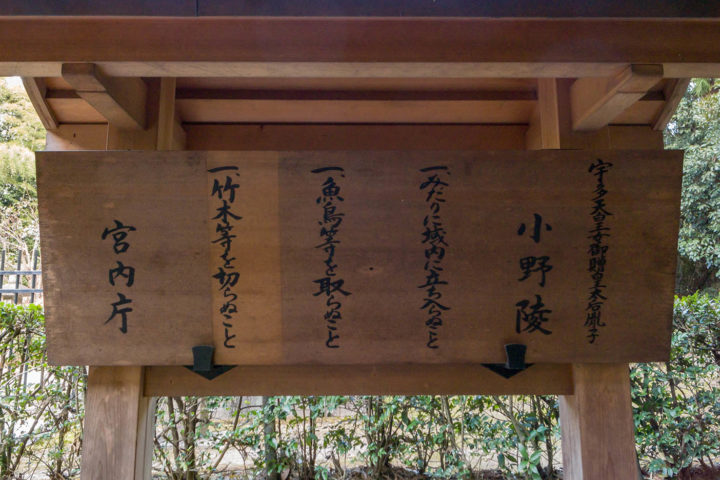 宇多天皇女御贈皇太后胤子
小野陵
一、みだりに域内に立ち入らぬこと
一、魚鳥等を取らぬこと
一、竹木等を切らぬこと
宮内庁